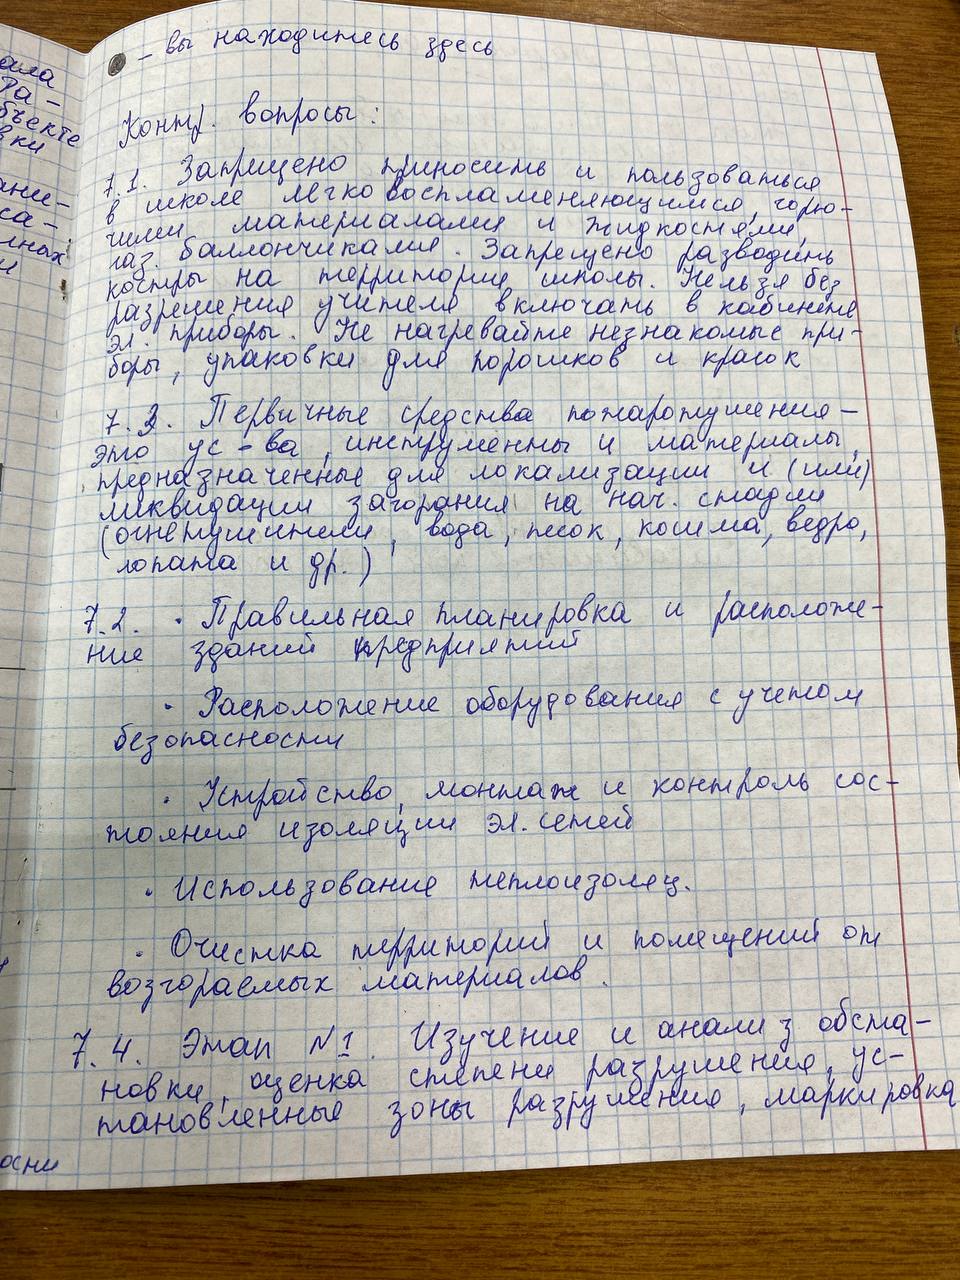 ала
та-
бъекте
вки
ание-
са-
лных
и
осни
- вы находитесь здесь
Контр. вопросы:
7.1. Запрещено приносить и пользоваться
в школе легковоспламеняющимся, горю-
чими материалами и жидкостями,
газ. баллончиками. Запрещено разводить
костры на территории школы. Нельзя без
разрешения учителя включать в кабинете
эл. приборы. Не нагревайте незнакомые при-
боры, упаковки для порошков и красок
7.3. Первичные средства пожаротушения-
это ус-ва, инструменты и материалы,
предназначенные для локализации и (или)
ликвидации загорания на нач. стадии
(огнетушители, вода, песок, кошма, ведро,
лопата и др.)
7.2. • Правильная планировка и расположе-
ние зданий предприятий
• Расположение оборудования с учетом
безопасности
• Устройство, монтаж и контроль сос-
тояния изоляции эл. сетей
• Использование теплоизоляц.
• Очистка территорий и помещений от
возгораемых материалов.
7.4. Этап №1. Изучение и анализ обста-
новки, оценка степени разрушения, ус-
тановленные зоны разрушения, маркировка